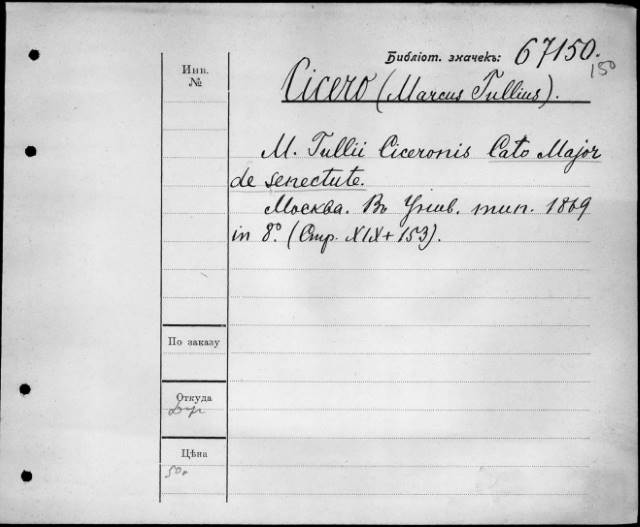 Библіот. значекъ: 67150.
150
Инв.
№
Cicero (Marcus Tullius).
M. Tullii Ciceronis Cato Major
de senectute.
Москва. Въ Унив. тип. 1869
in 8º. (Стр. XIX + 153).
По заказу
Откуда
Цѣна
50